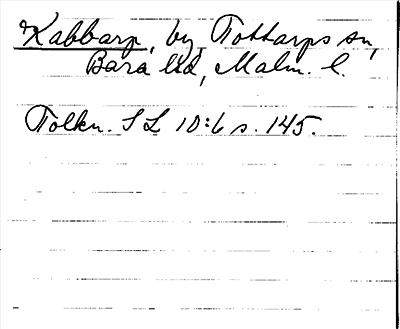 Kabbarp, by, Tottarps sn,
Bara hd, Malm. l.
Tolkn. SL 10:6 s. 145.